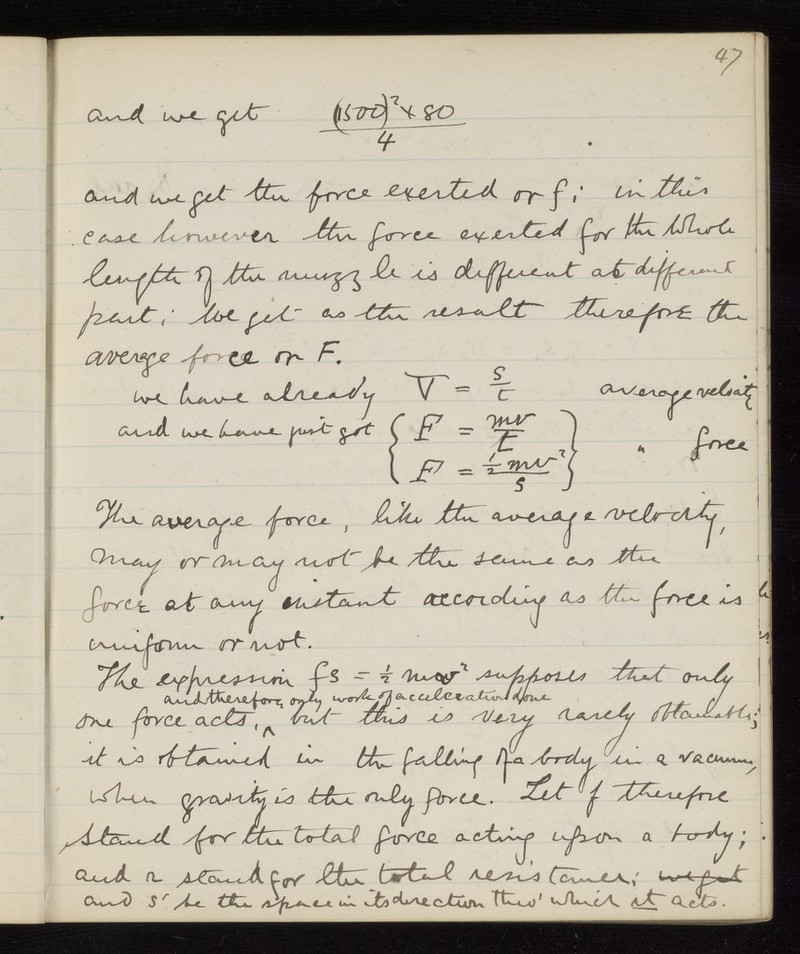 47
and we get (1500)² × 80
4
and we get the force exerted or f; in this
case however the force exerted for the whole
length of the muzzle is different at different
part; we get as the result therefore the
average force or F.
we have already V = s/t average velocity
and we have just got { F = mv/t } " force
{ F = ½mv²/s }
The average force, like the average velocity,
may or may not be the same as the
force at any instant according as the force is
uniform or not.
The expression fs = ½ mv² supposes that only
and therefore only work of acceleration done
one force acts, ^ but this is very rarely obtainable;
it is obtained in the falling of a body in a vacuum,
when gravity is the only force. Let f therefore
stand for the total force acting upon a body;
and r stand for the total resistances; we get
and s' be the space in its direction thro' which it acts.